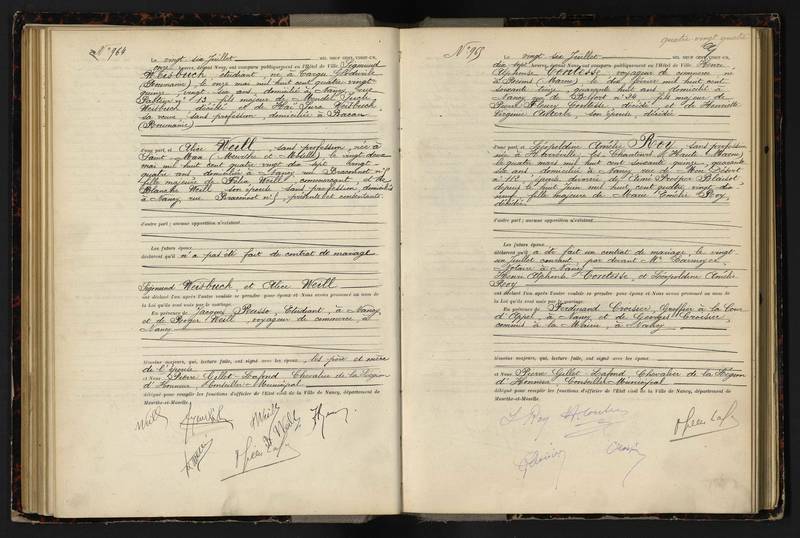 N° 964
Le vingt six juillet mil neuf cent vingt-un,
onze heures, devant Nous, ont comparu publiquement en l'Hôtel de Ville Sigmund
Weisbuch, étudiant, né à
(Roumanie), le onze mai mil huit cent quatre vingt
quinze, vingt six ans, domicilié à Nancy, rue
Pasteur n° 13, fils majeur de Mendel
Weisbuch, décédé et de Weisbuch,
sa veuve, sans profession, domiciliée à Bacau
(Roumanie)
d'une part, et Alice Weill, sans profession, née à
Saint Max (Meurthe et Moselle), le vingt deux
mai mil huit cent quatre vingt dix sept, vingt
quatre ans, domiciliée à Nancy, rue Braconnot n°
fille majeure de Félix Weill, commerçant et de
Blanche Weill, son épouse, sans profession, domiciliés
à Nancy, rue Braconnot n° présents et consentants.
d'autre part ; aucune opposition n'existant
Les futurs époux
déclarent qu'il n'a pas été fait de contrat de mariage
Sigmund Weisbuch et Alice Weill
ont déclaré l'un après l'autre vouloir se prendre pour époux et Nous avons prononcé au nom de
la Loi qu'ils sont unis par le mariage.
En présence de Jacques Russo, Etudiant, à Nancy
et de Roger Weill, voyageur de commerce, à
Nancy
témoins majeurs, qui, lecture faite, ont signé avec les époux, les père et mère
de l'épouse
et Nous Pierre Gillet-Lafond, Chevalier de la Légion
d'Honneur, Conseiller Municipal
délégué pour remplir les fonctions d'officier de l'Etat civil de la Ville de Nancy, département de
Meurthe-et-Moselle.
Weill
Weill
quatre vingt quatre
N° 965
Le vingt six juillet mil neuf cent vingt-un,
dix sept heures, devant Nous, ont comparu publiquement en l'Hôtel de Ville Henri
Alphonse Contesse, voyageur de commerce, né
à Reims (Marne), le dix février mil huit cent
soixante treize, quarante huit ans, domicilié à
Nancy, rue de Belfort n° 34, fils majeur de
Pierre Fleury Contesse, décédé, et de Henriette
Virginie son épouse, décédée
d'une part, et Léopoldine Amélie Roy, sans profession
née à (Haute Marne)
le quatre mars mil huit cent soixante quinze, quarante
six ans, domiciliée à Nancy, rue de Mon Désert
n° divorcée de Clovis Prosper
depuis le huit juin mil huit cent quatre vingt dix
neuf, fille majeure de Marie Emélie Roy,
décédée
d'autre part ; aucune opposition n'existant
Les futurs époux
déclarent qu'il a été fait un contrat de mariage, le vingt
un juillet courant, par devant Me
Notaire à Nancy
Henri Alphonse Contesse, et Léopoldine Amélie
Roy
ont déclaré l'un après l'autre vouloir se prendre pour époux et Nous avons prononcé au nom de
la Loi qu'ils sont unis par le mariage.
En présence de Ferdinand Croisier, Greffier à la Cour
d'Appel, à Nancy, et de Georges Croisier,
commis à la Mairie, à Nancy
témoins majeurs, qui, lecture faite, ont signé avec les époux
et Nous Pierre Gillet-Lafond, Chevalier de la Légion
d'Honneur, Conseiller Municipal
délégué pour remplir les fonctions d'officier de l'Etat civil de la Ville de Nancy, département de
Meurthe-et-Moselle.
L Roy